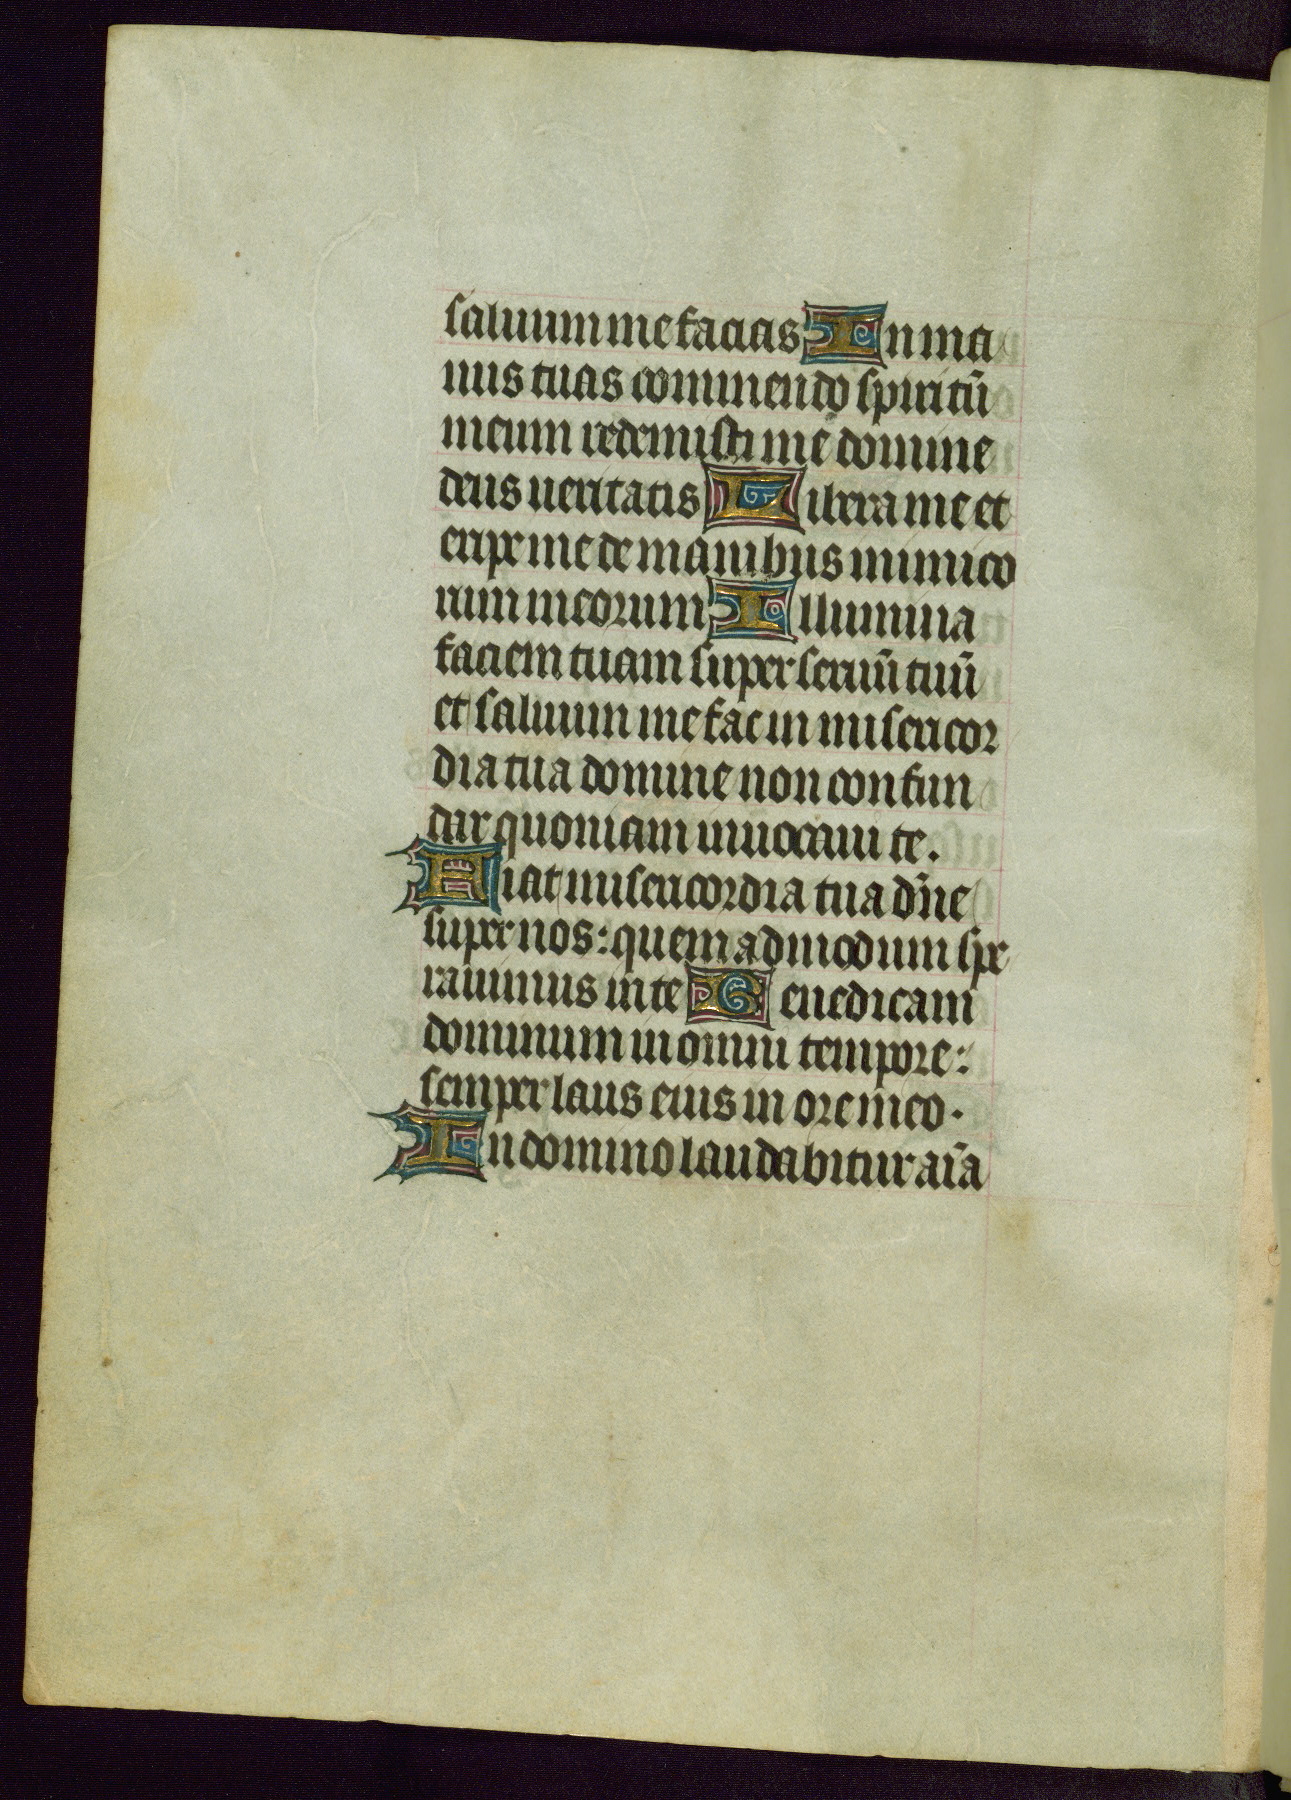 saluum me facias In ma
nus tuas commendo spiritū
meum redemisti me domine
deus ueritatis Libera me et
eripe me de manibus inimico
rum meorum Illumina
faciem tuam super seruū tuū
et saluum me fac in misericor
dia tua domine non confun
dar quoniam inuocaui te.
Fiat misericordia tua dn̄e
super nos: quem admodum spe
rauimus in te Benedicam
dominum in omni tempore:
semper laus eius in ore meo.
In domino laudabitur aīa